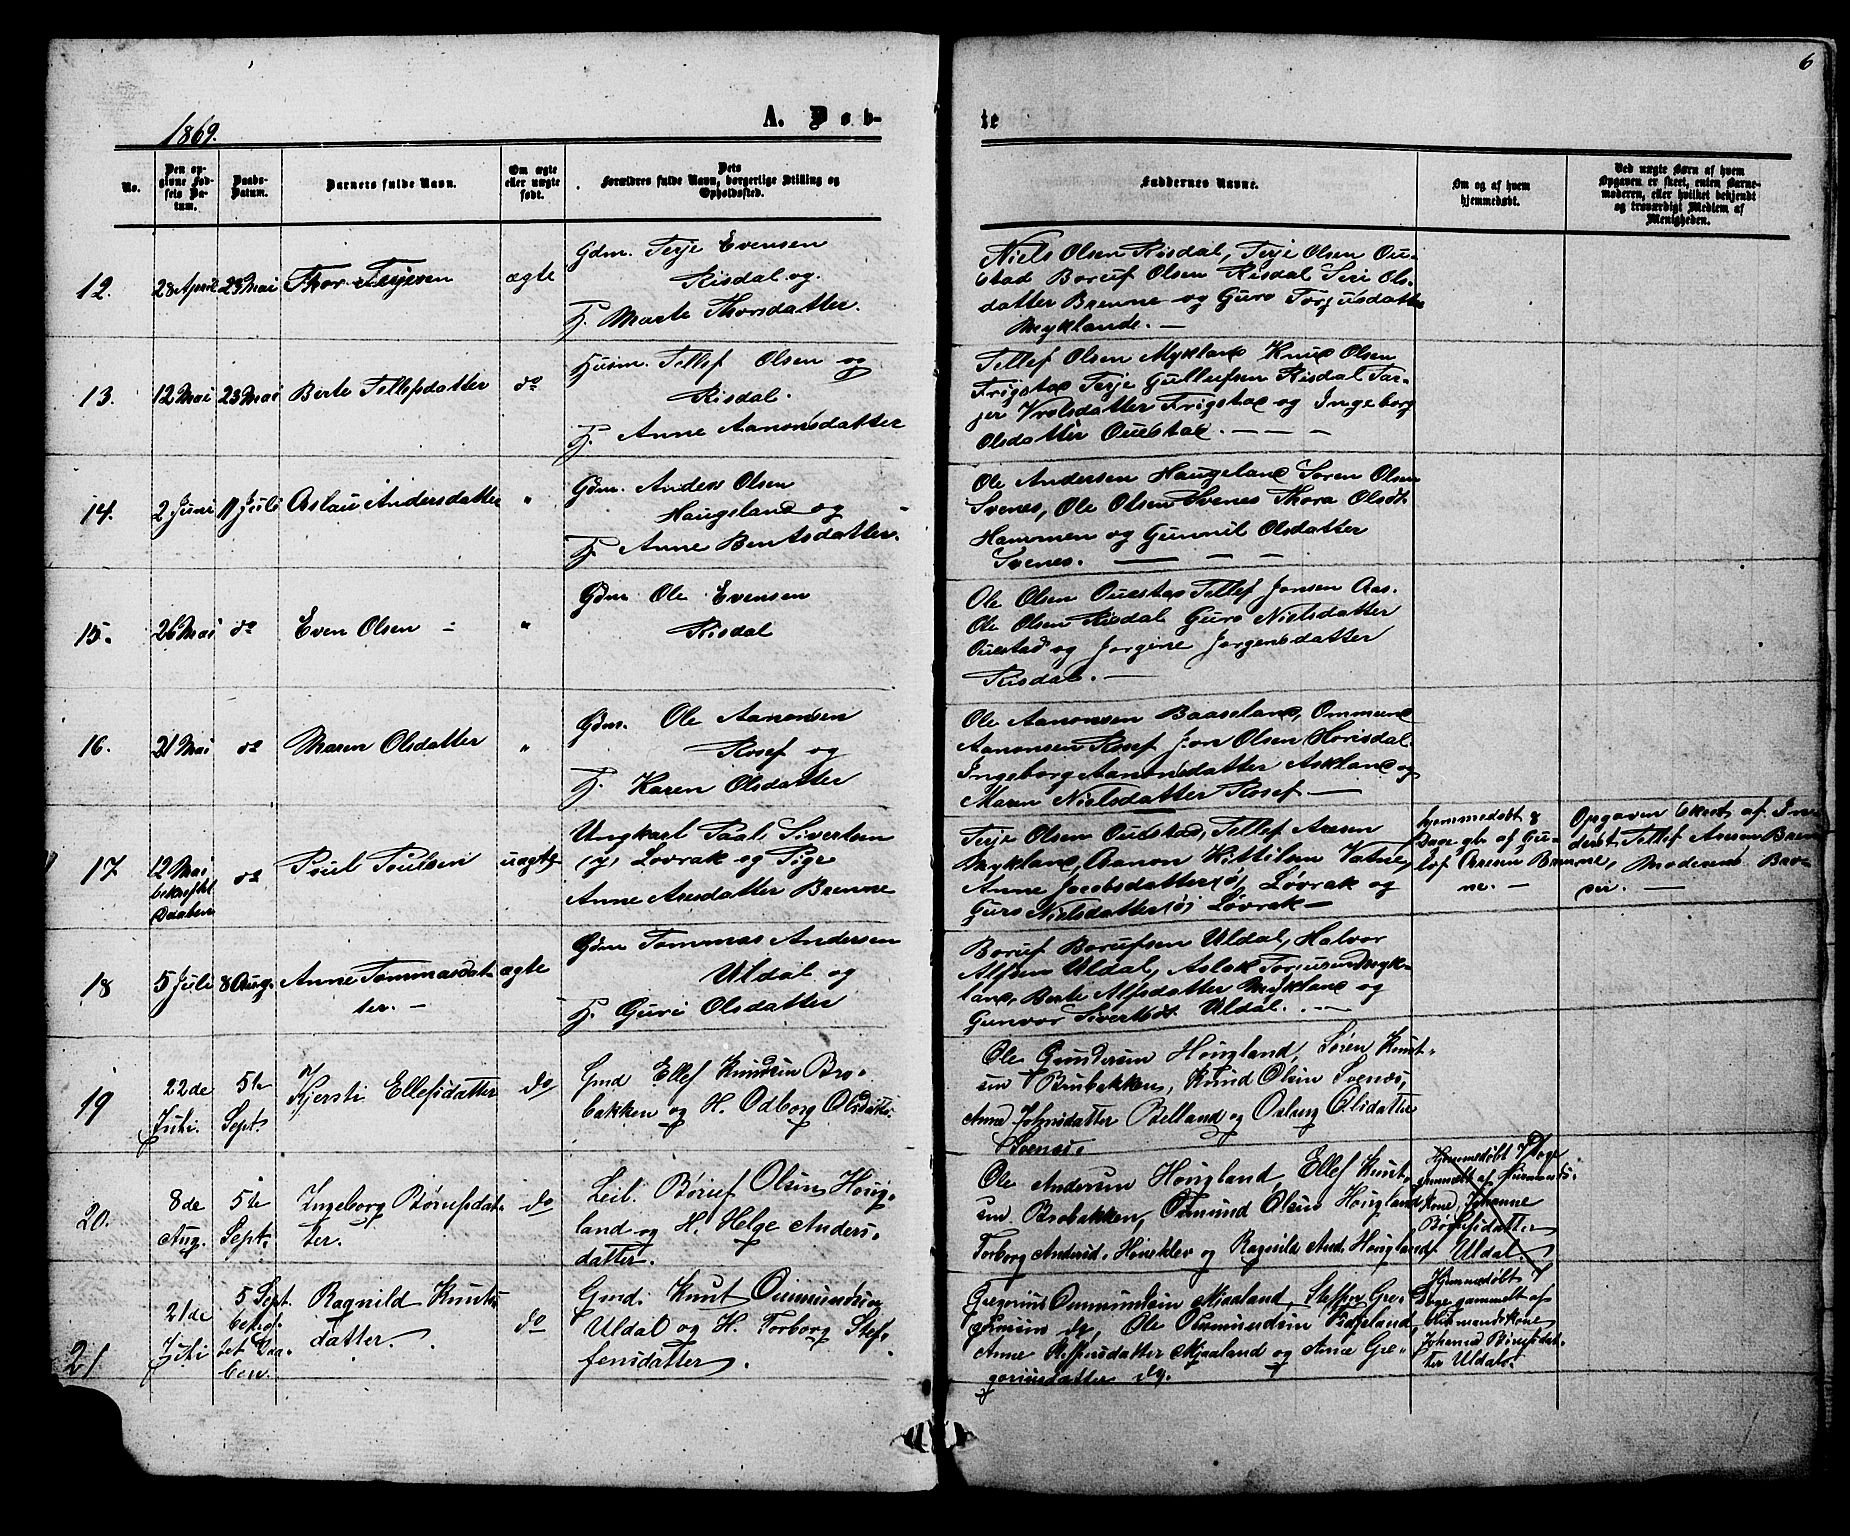 6
1869.
A. Døb-
te
No.
Den op-
givne Fød-
sels Da-
tum.
Daabs-
Datum.
Barnets fulde Navn.
Om ægte
eller uægte
født.
Dets
Forældres fulde Navn, borgerlige Stilling og
Opholdssted.
Faddernes Navne.
Om og af hvem
hjemmedøbt.
Ved uægte Børn af hvem
Opgaven er skeet, enten Barne-
moderen, eller hvilket bekjendt
og troværdigt Medlem af
Menigheden.
12.
28 April
23 Mai
Thor Terjesen
ægte
Gdm. Terje Evensen
Risdal og
H. Marte Thorsdatter.
Niels Olsen Risdal, Terje Olsen Ou-
stad Boruf Olsen Risdal Siri Ols-
datter Brenne og Guro Torgusdatter
Myklande. —
13.
12 Mai
23 Mai
Berte Tellefsdatter
do
Husm. Tellef Olsen og
Risdal.
H. Anne Aanonsdatter
Tellef Olsen Mykland Knud Olsen
Frigstad Terje Gullufsen Risdal Tar-
jer Vrolsdatter Frigstad og Ingeborg
Olsdatter Ouestad. — — —
14.
2 Juni
11 Juli
Aslau Andersdatter
"
Gdm. Anders Olsen
Haugeland og
H. Anne Bentsdatter.
Ole Andersen Haugeland Søren Olsen
Svenes, Ole Olsen Svenes Thora Olsdt
Hammen og Gunnil Olsdatter
Svenes. — — —
15.
26 Mai
do
Even Olsen
"
Gdm Ole Evensen
Risdal
Ole Olsen Ouestad Tellef Jonsen Aas.
Ole Olsen Risdal Guro Nielsdatter
Ouestad og Jorgine Jorgensdatter
Risdal. —
16.
21 Mai
do
Maren Olsdatter
"
Gdm. Ole Aanonsen
Rosef og
H. Karen Olsdatter
Ole Aanonsen Baaseland, Ommund
Aanonsen Rosef Jon Olsen Horisdal.
Ingeborg Aanonsdatter Askland og
Maren Nielsdatter Rosef. —
17
12 Mai
Daaben
do
Poul Poulsen
uægte
Ungkarl Paal Sivertsen
Lovrak og Pige
Anne Aresdatter Brenne
Terje Olsen Ouestad, Tellef Aresen
Mykland, Aanon Kittilsen Vatne,
Anne Jacobsdatter Løvrak og
Guro Nielsdatter Løvrak —
hjemmedøbt 8
Dage gl. af Gu-
lof Aresen Bren-
ne. —
Opgaven skeet af In-
derst Tellef Aresen Bren
ne, Moderens Bro-
der. —
18
5 Juli
8 Aug.
Anne Tommasdat-
ter. —
ægte
Gdm Tommas Andersen
Uldal og
H. Guri Olsdatter
Boruf Borufsen Uldal, Halvor
Alfsen Uldal, Aslak Torjusen Myk-
land, Berte Alfsdatter Mykland og
Gunvor Sivertsdt Uldal. . —
19
22de
Juli.
5te
Sept.
Kjersti Ellefsdatter
do
Gmd Ellef Knudsen Bro-
bakken og H. Odborg Olsdatter
Ole Gundersen Hougland, Søren Knut-
sen Brobakken, Knud Olsen Svenes,
Anne Johnsdatter Belland og Osborg Olsdatter
Svenes.
20.
8de
Aug.
5te
Sept.
Ingeborg Børufsdat-
ter.
do
Leil. Børuf Olsen Houg-
land og H. Helge Anders-
datter.
Ole Andersen Hougland, Ellef Knut-
sen Brobakken, Osmund Olsen Hougland
Torborg Andersd. og Ragnild And. Hougland.
Hjemmedøbt 7 Dage
gammelt af Husmands-
kone Johanne
Børufsdatter
Uldal.
21
21de
Juli
5 Sept.
bekræf-
tet Daa-
ben.
Ragnild Knuts-
datter.
do
Gmd. Knut Ommundsen
Uldal og H. Torborg Stef-
fensdatter.
Gregorius Ommundsen Mjaaland, Steffen Gre-
goriusen do, Ole Osmundsen Mjaaland,
Anne Steffensdatter Mjaaland og Anne Gre-
goriusdatter do.
Hjemmedøbt 7
Dage gammelt af
Husmandskone
Johanne Børufsdat-
ter Uldal.